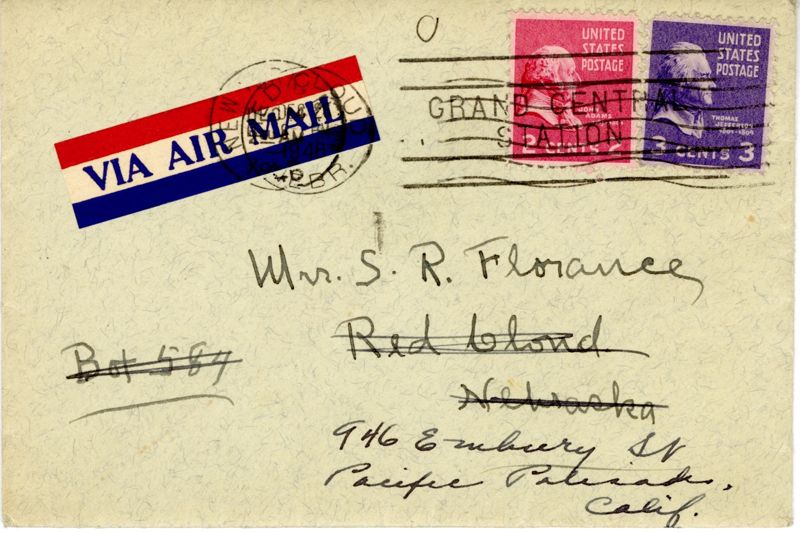 O
UNITED
STATES
POSTAGE
JOHN
ADAMS
2 CENTS 2
UNITED
STATES
POSTAGE
THOMAS
JEFFERSON
1801-1809
3 CENTS 3
GRAND CENTRAL
STATION
VIA AIR MAIL
NEW
NEBR.
1946
Mrs. S. R. Florance
Red Cloud
Nebraska
Box 587
946 Embury St
Pacific Palisades,
Calif.